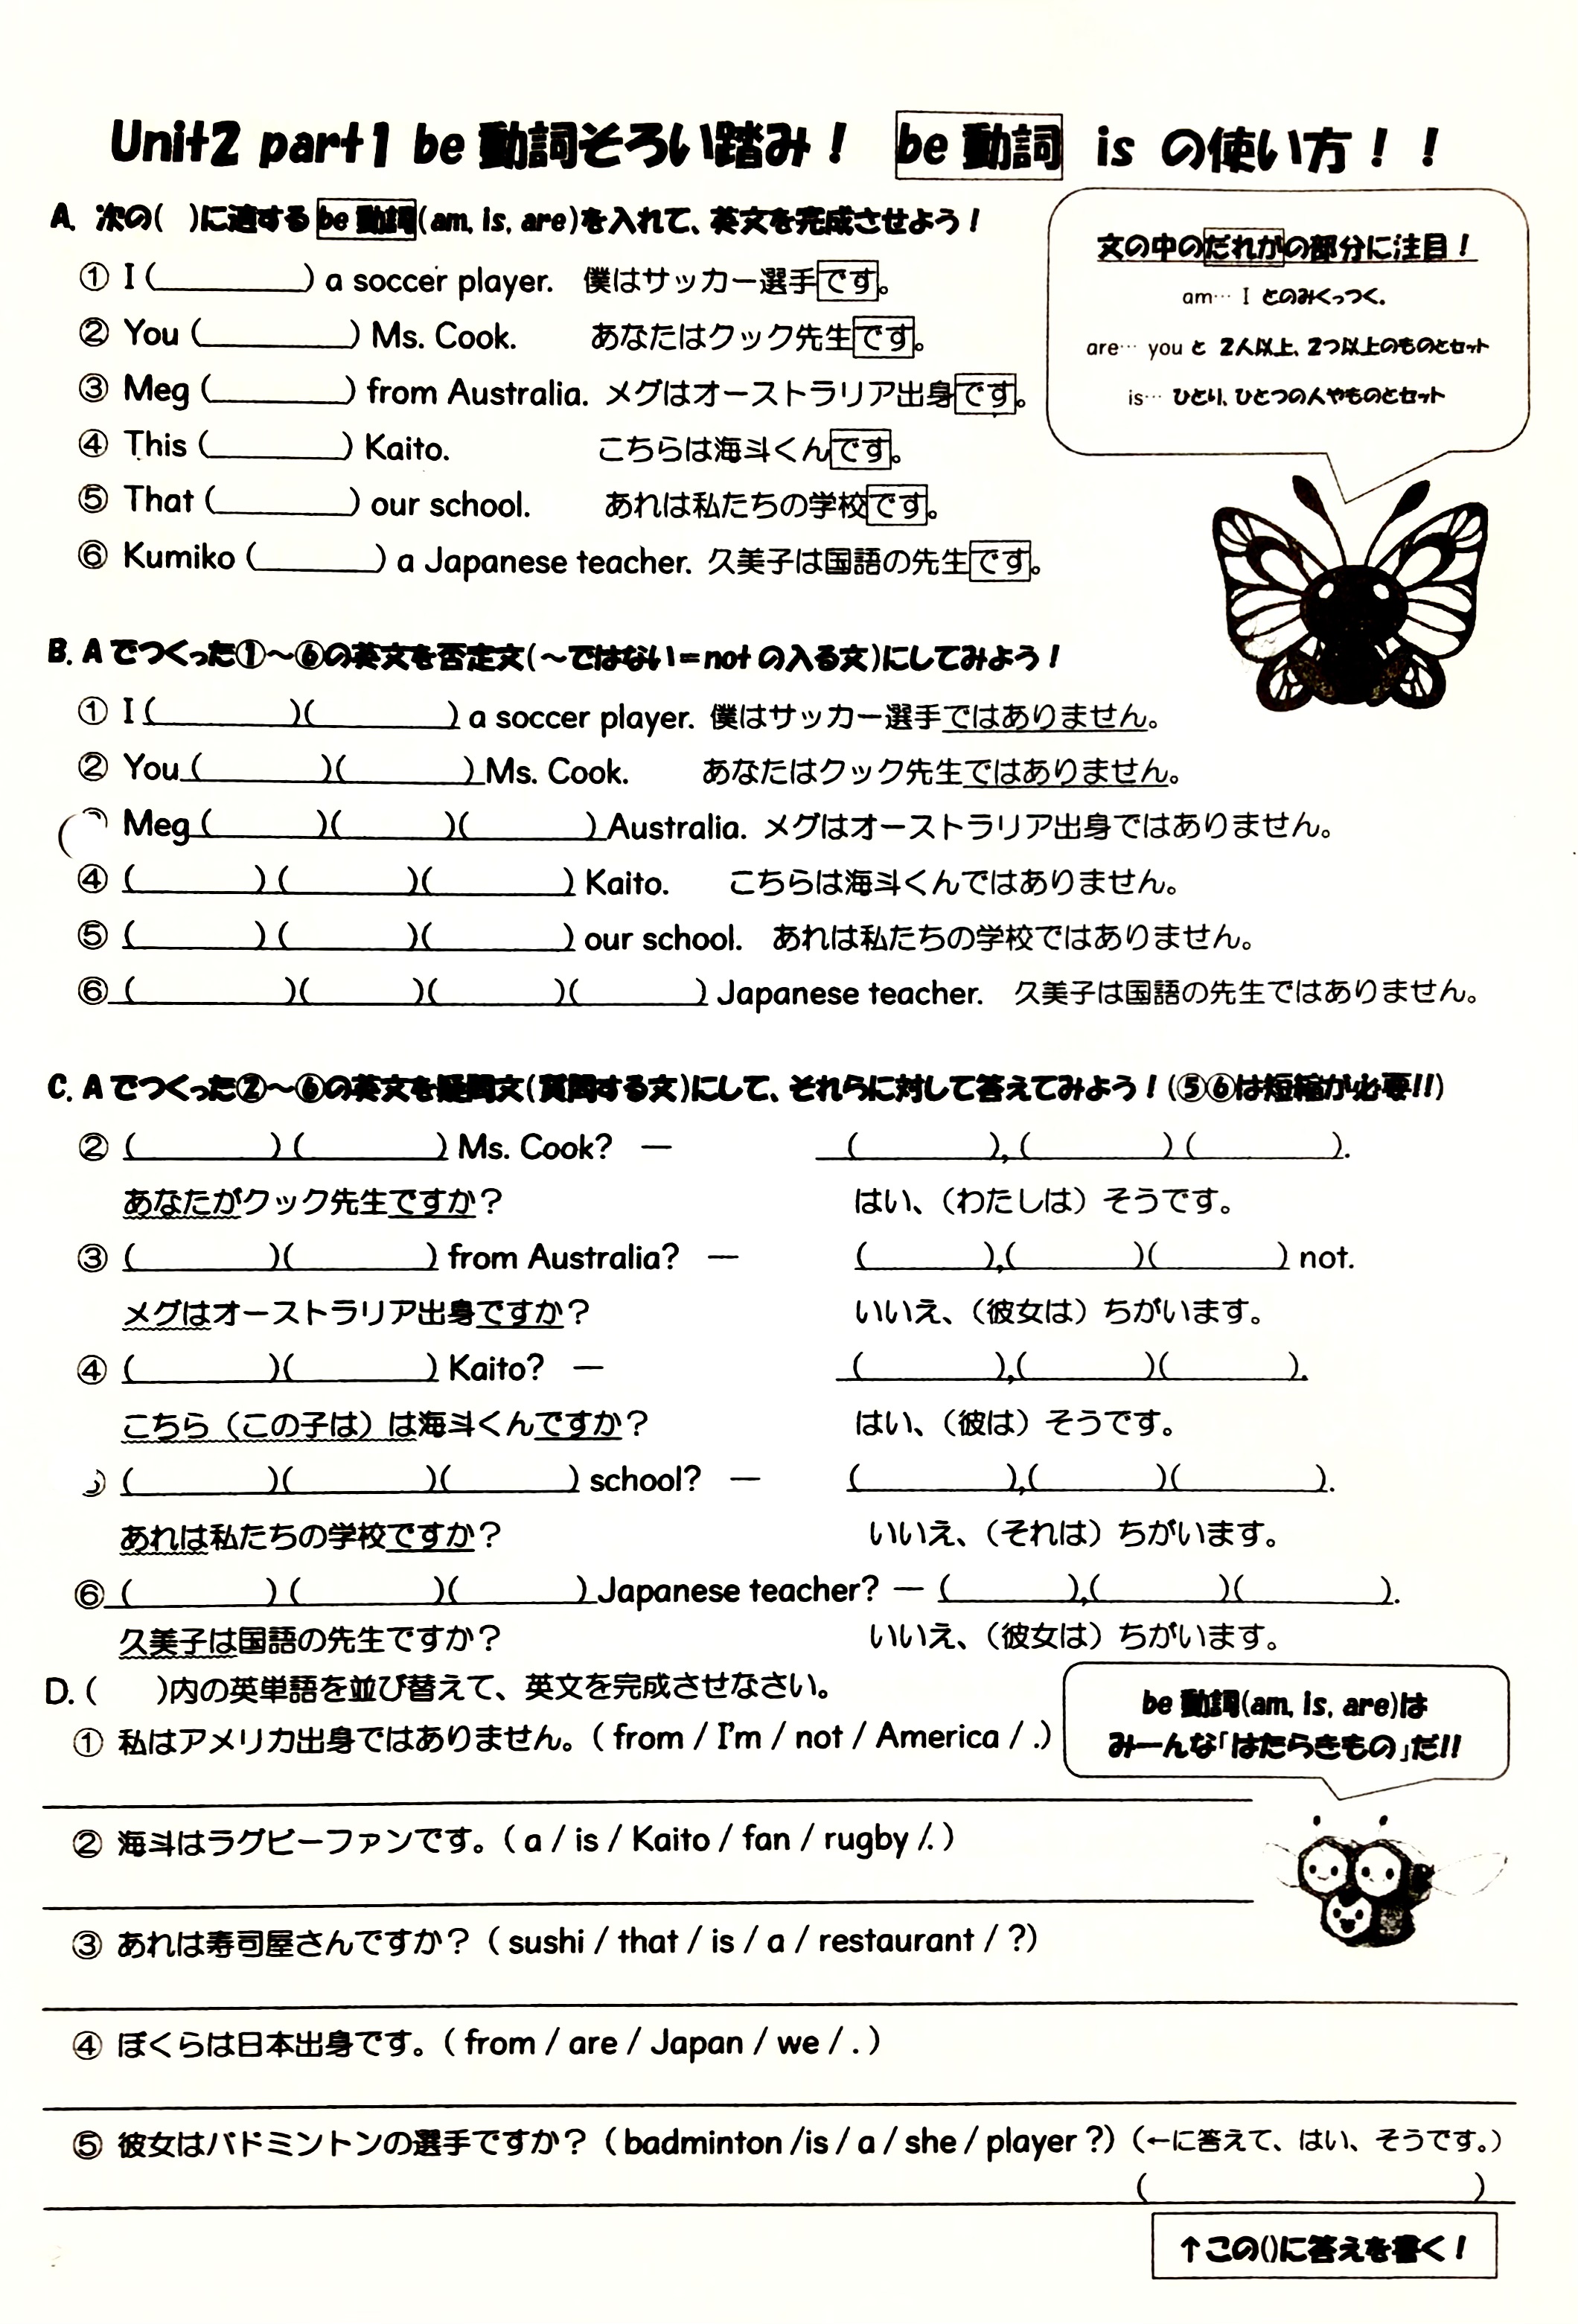 Unit2 part1 be 動詞そろい踏み! be 動詞 is の使い方!!
A. 次の( )に適する be 動詞(am, is, are)を入れて、英文を完成させよう!
① I (          ) a soccer player. 僕はサッカー選手です。
② You (          ) Ms. Cook. あなたはクック先生です。
③ Meg (          ) from Australia. メグはオーストラリア出身です。
④ This (          ) Kaito. こちらは海斗くんです。
⑤ That (          ) our school. あれは私たちの学校です。
⑥ Kumiko (          ) a Japanese teacher. 久美子は国語の先生です。
文の中のだれがの部分に注目!
am… I とのみくっつく.
are… you と 2人以上、2つ以上のものとセット
is… ひとり、ひとつの人やものとセット
B. A でつくった①~⑥の英文を否定文(~ではない=not の入る文)にしてみよう!
① I (          )(          ) a soccer player. 僕はサッカー選手ではありません。
② You (          )(          ) Ms. Cook. あなたはクック先生ではありません。
Meg (          )(          )(          ) Australia. メグはオーストラリア出身ではありません。
④ (          ) (          )(          ) Kaito. こちらは海斗くんではありません。
⑤ (          ) (          )(          ) our school. あれは私たちの学校ではありません。
⑥ (          )(          )(          )(          ) Japanese teacher. 久美子は国語の先生ではありません。
C. A でつくった②~⑥の英文を疑問文(質問する文)にして、それらに対して答えてみよう!(⑤⑥は短縮が必要!!)
② (          ) (          ) Ms. Cook? — (          ), (          ) (          ).
あなたがクック先生ですか? はい、(わたしは)そうです。
③ (          )(          ) from Australia? — (          ),(          )(          ) not.
メグはオーストラリア出身ですか? いいえ、(彼女は)ちがいます。
④ (          )(          ) Kaito? — (          ),(          )(          ).
こちら(この子は)は海斗くんですか? はい、(彼は)そうです。
(          )(          )(          ) school? — (          ),(          )(          ).
あれは私たちの学校ですか? いいえ、(それは)ちがいます。
⑥ (          ) (          )(          ) Japanese teacher? — (          ),(          )(          ).
久美子は国語の先生ですか? いいえ、(彼女は)ちがいます。
D. (     )内の英単語を並び替えて、英文を完成させなさい。
① 私はアメリカ出身ではありません。( from / I'm / not / America / .)
be 動詞(am, is, are)は
みーんな「はたらきもの」だ!!
② 海斗はラグビーファンです。( a / is / Kaito / fan / rugby /. )
③ あれは寿司屋さんですか? ( sushi / that / is / a / restaurant / ?)
④ ぼくらは日本出身です。( from / are / Japan / we / . )
⑤ 彼女はバドミントンの選手ですか? ( badminton /is / a / she / player ?) (←に答えて、はい、そうです。)
(                    )
↑この()に答えを書く!